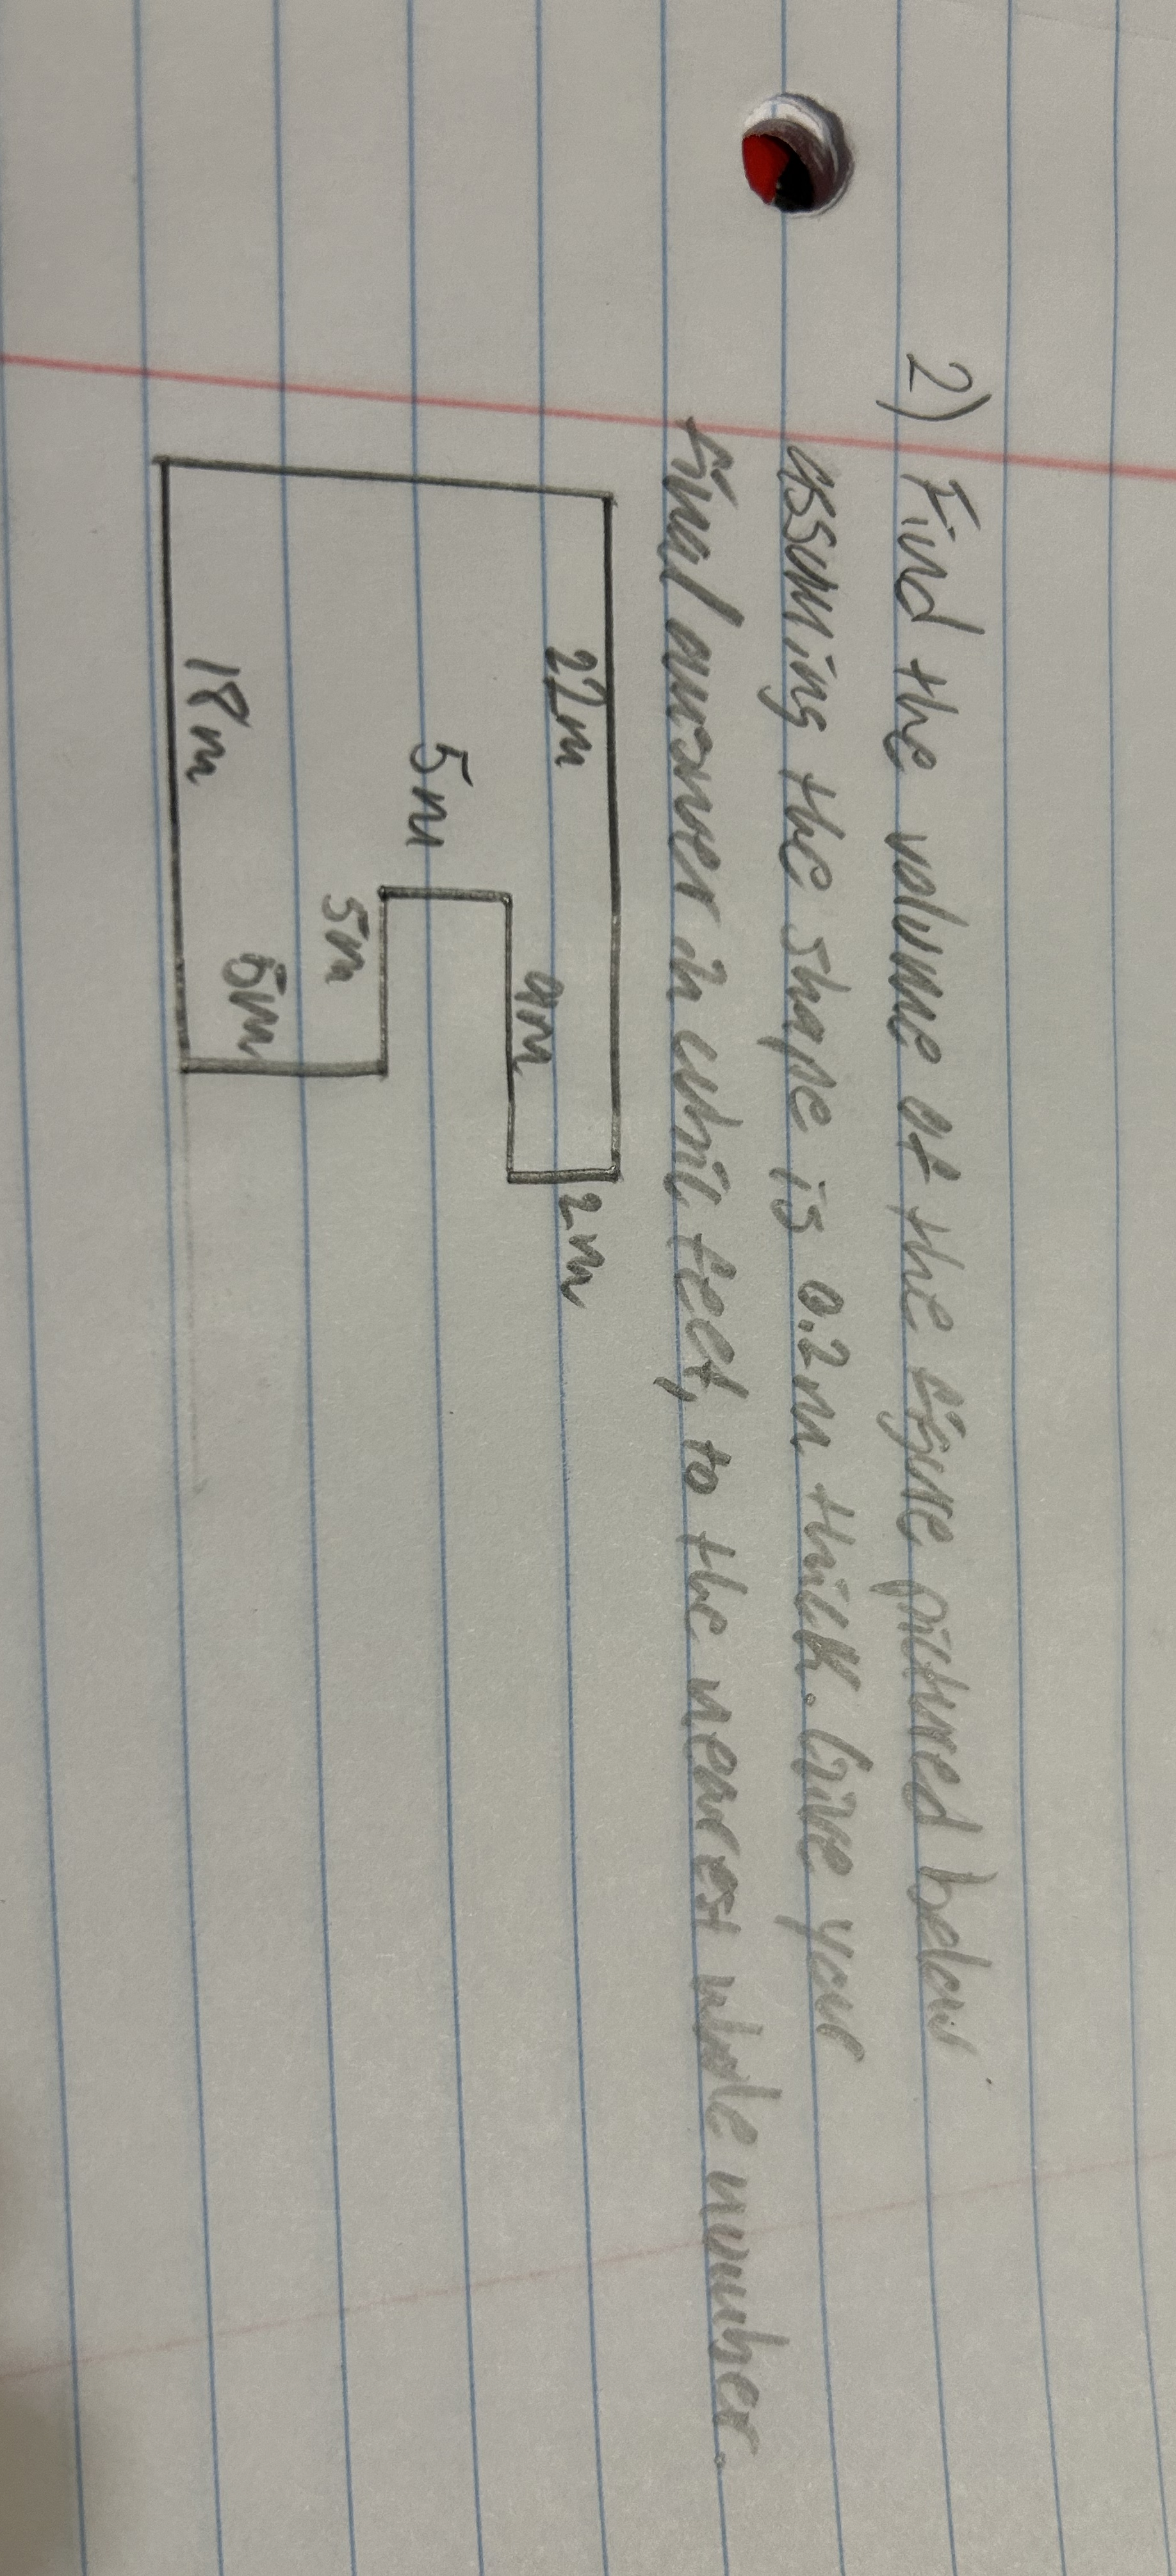 2) Find the volume of the figure pictured below
assuming the shape is 0.2m thick. Give your
final answer in cubic feet, to the nearest whole number.
22m
2m
9m
5m
5m
5m
18m